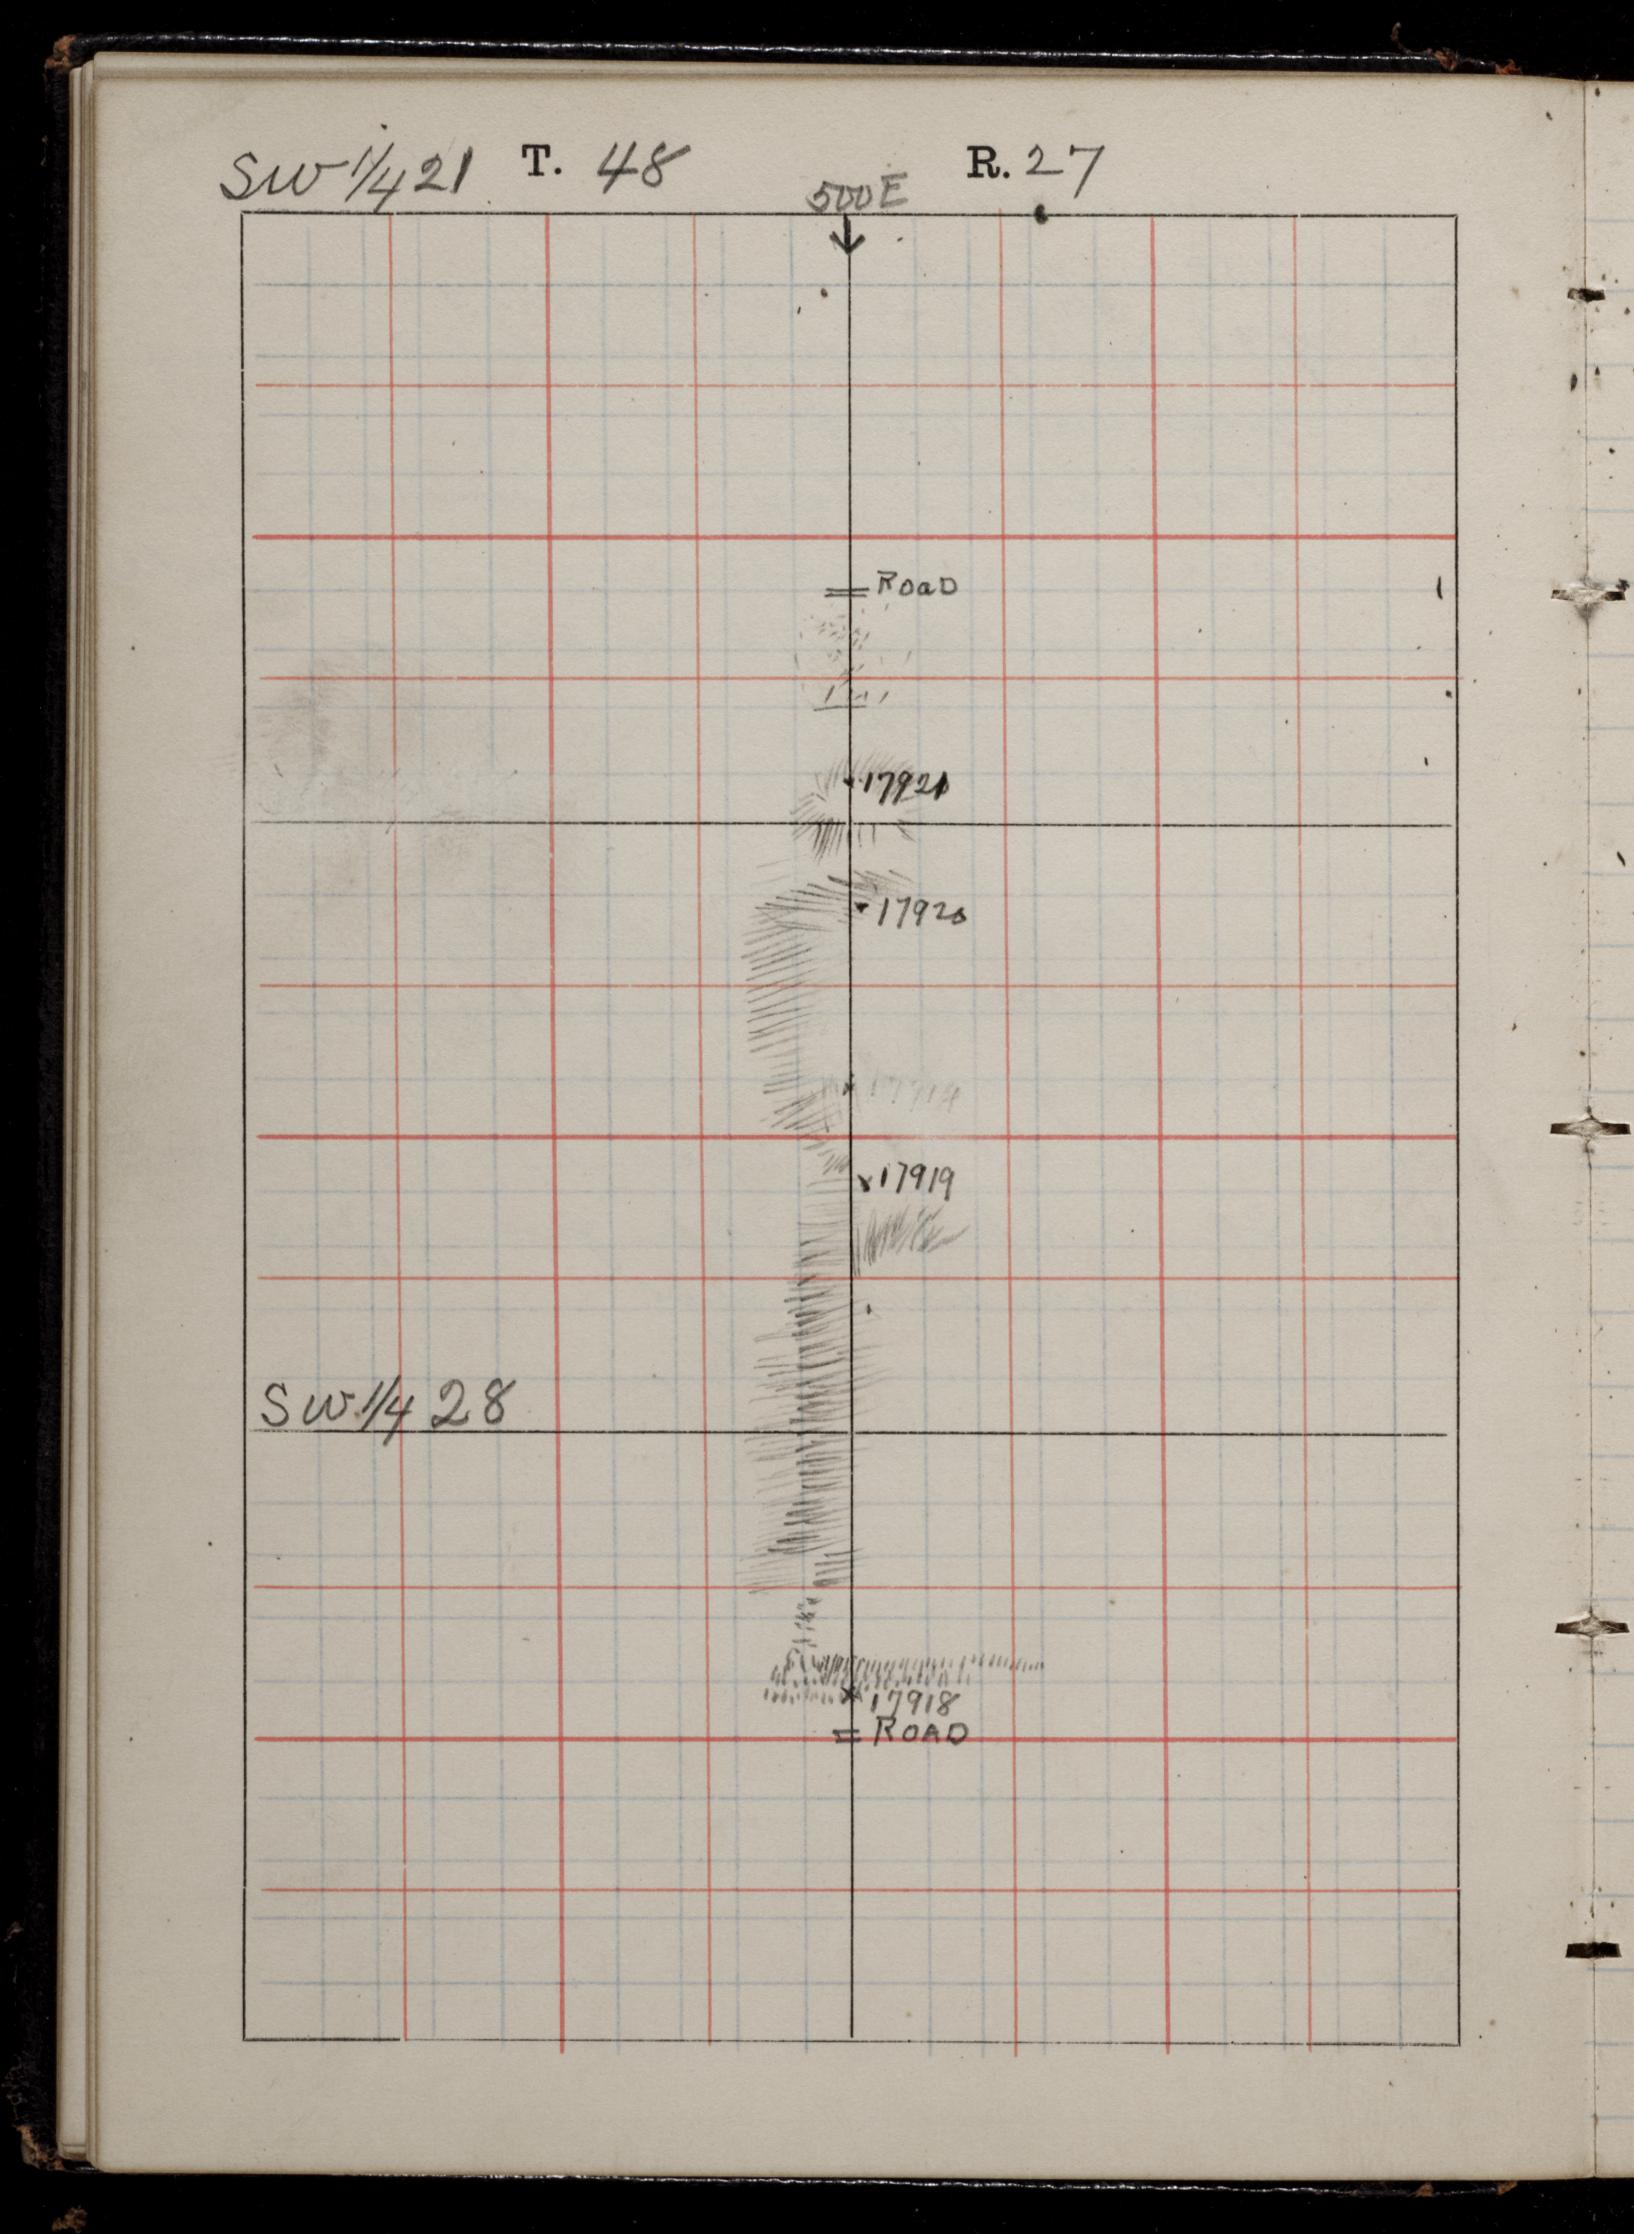 SW 1/4 21 T. 48 R. 27
500E
Road
17921
17920
17919
SW 1/4 28
17918
ROAD